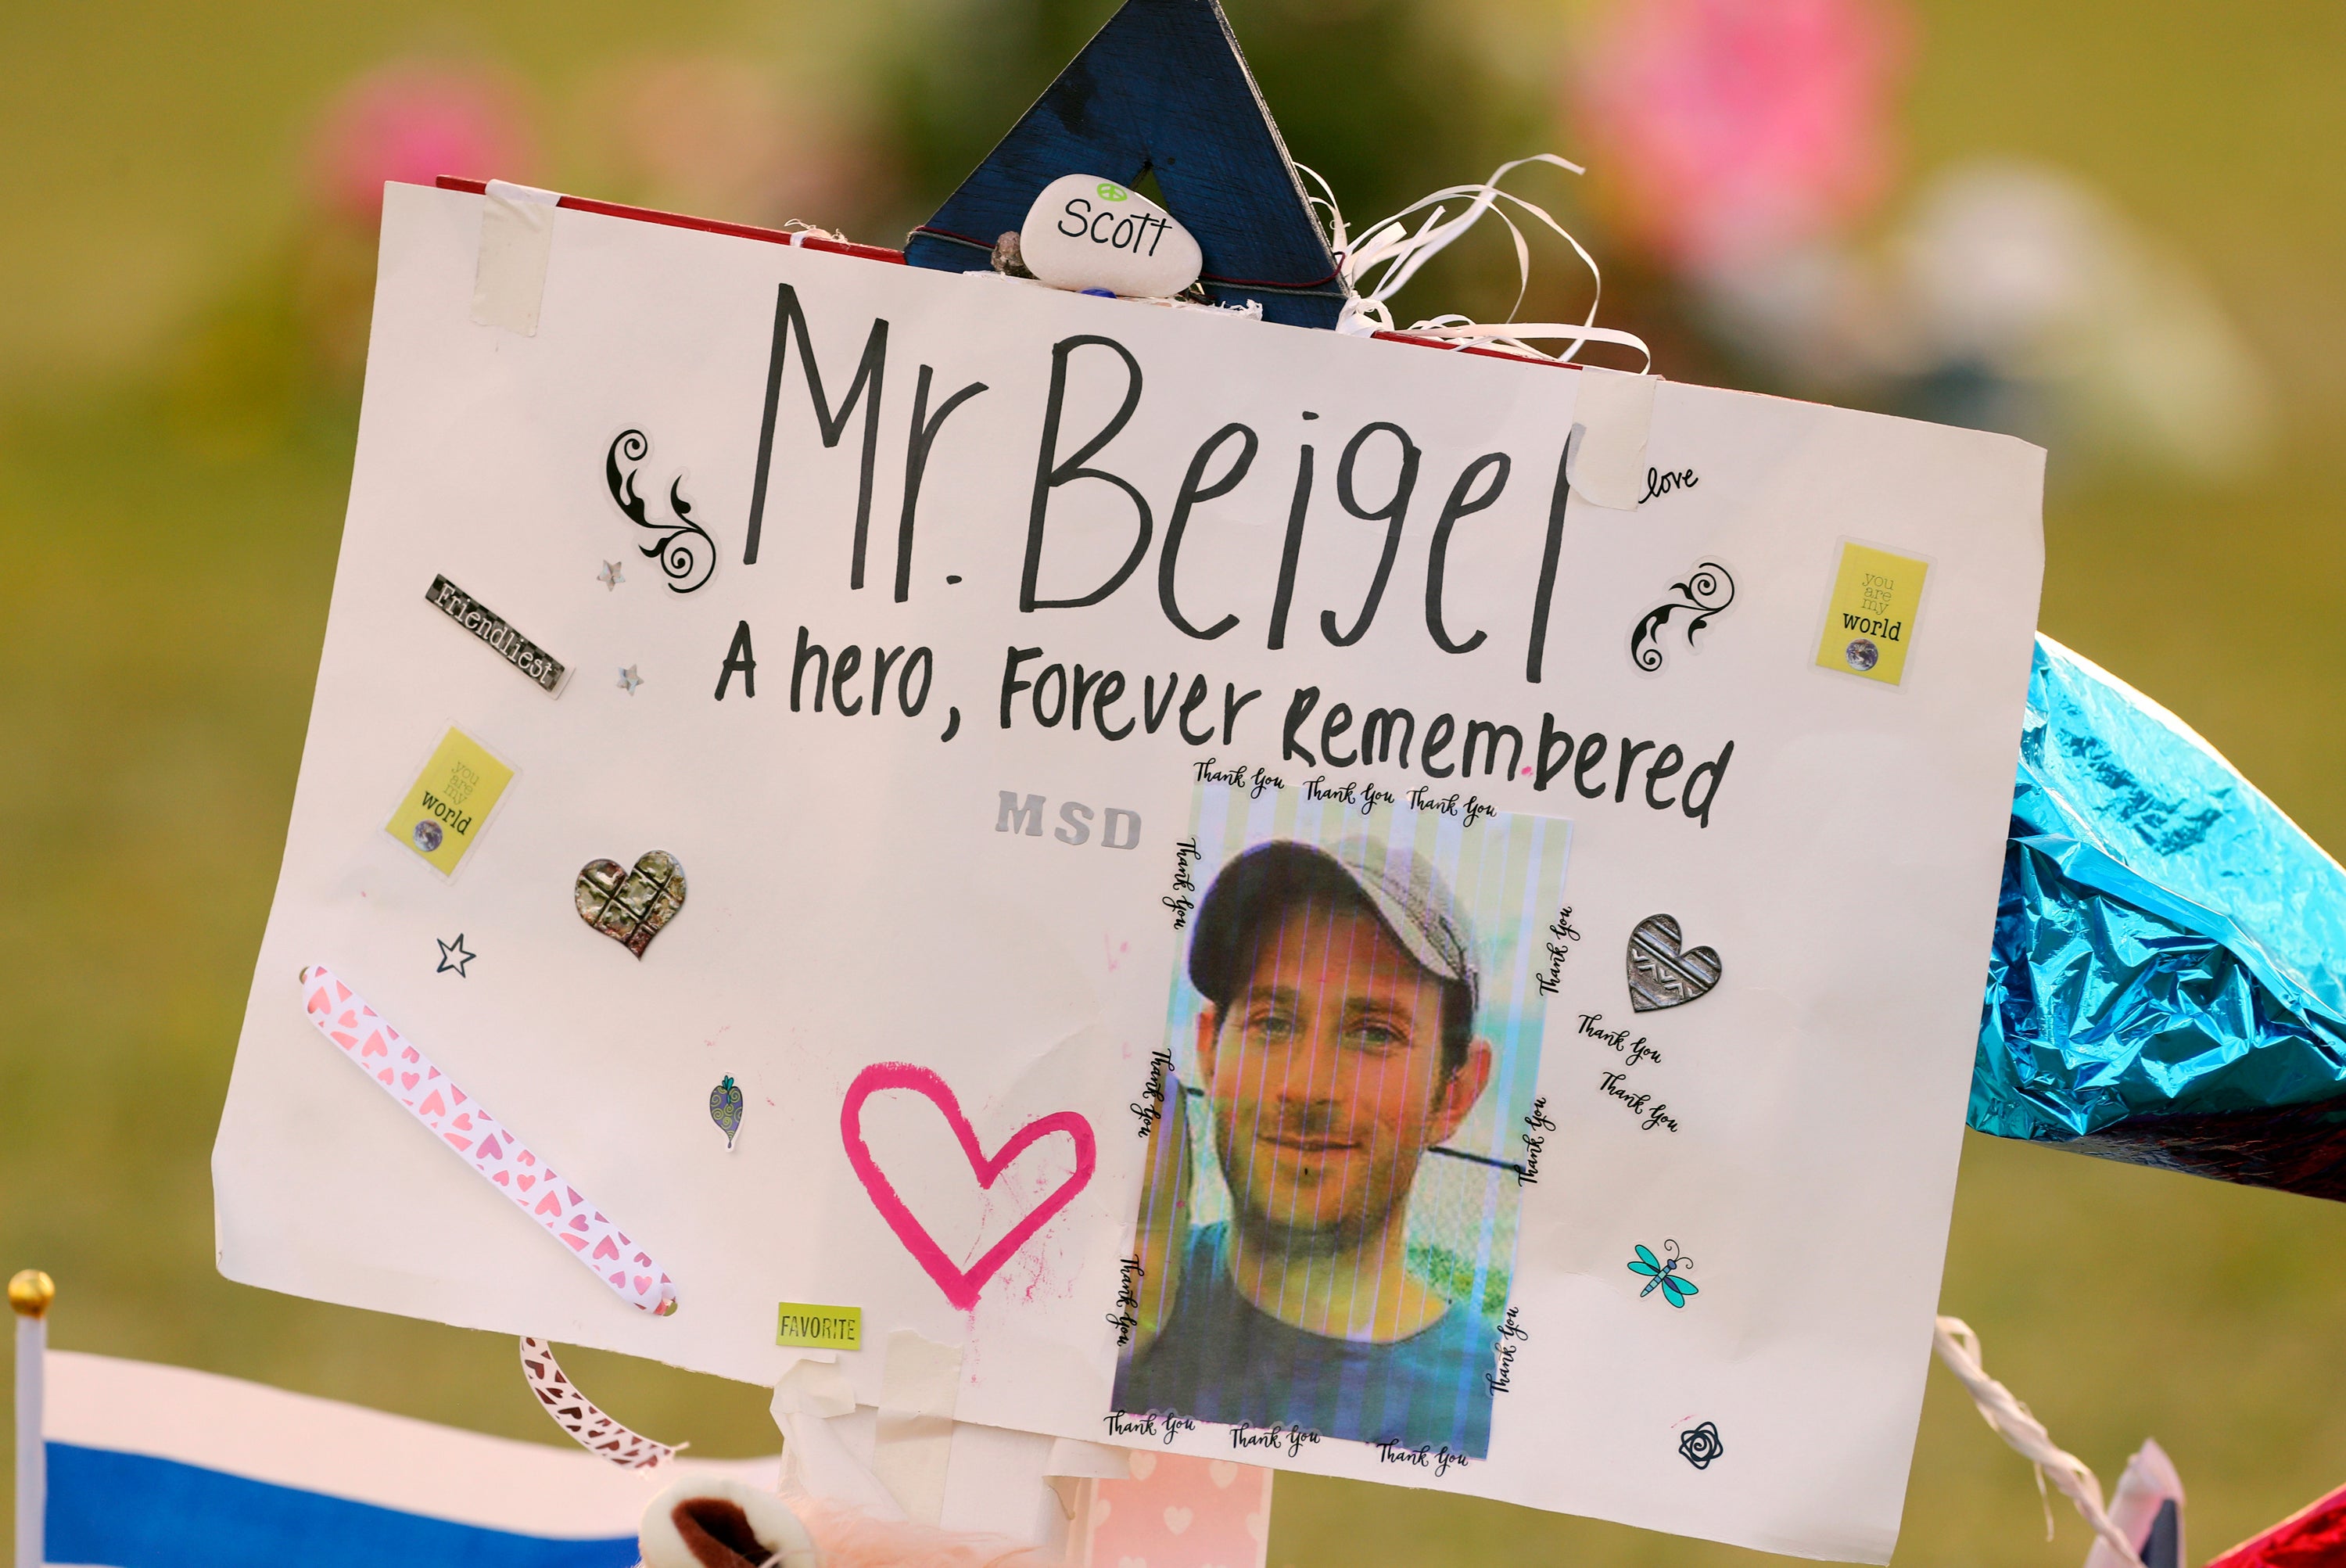 Scott
Mr. Beigel
love
A hero, Forever Remembered
Friendliest
you
are
my
world
you
are
my
world
MSD
Thank You Thank You Thank You
Thank You
Thank You
Thank You
Thank You
Thank You
Thank You
Thank You
Thank You
Thank You
FAVORITE
Thank You Thank You Thank You